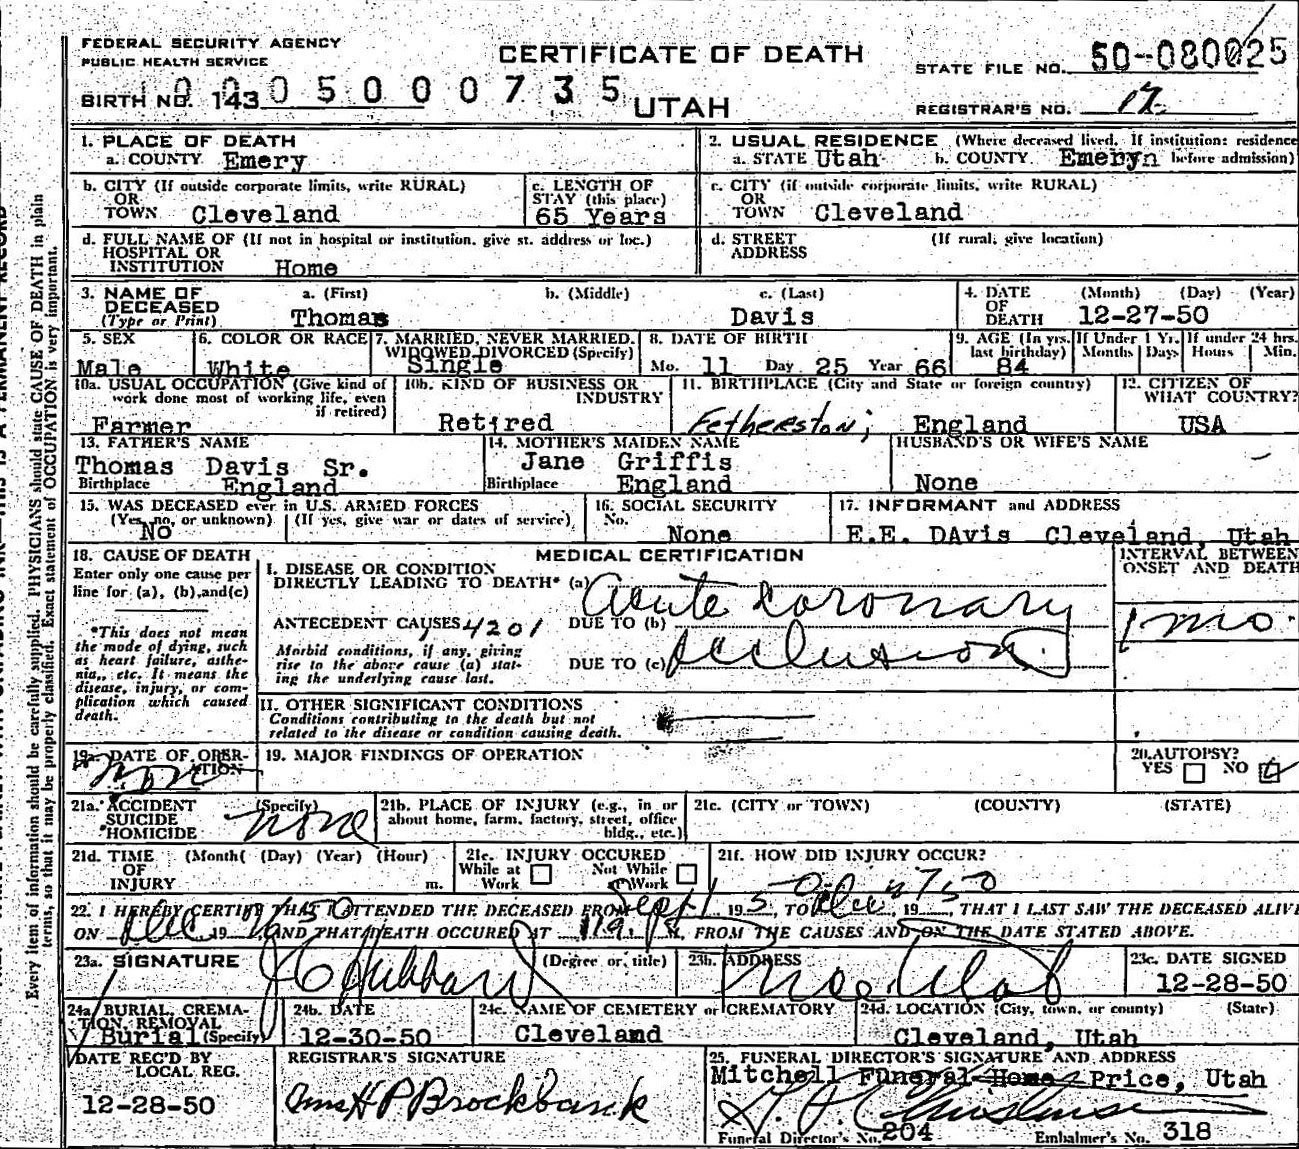 FEDERAL SECURITY AGENCY
PUBLIC HEALTH SERVICE
CERTIFICATE OF DEATH
STATE FILE NO. 50-080025
BIRTH NO. 143 0005000735
UTAH
REGISTRAR'S NO. 17
1. PLACE OF DEATH
a. COUNTY Emery
2. USUAL RESIDENCE (Where deceased lived. If institution: residence before admission)
a. STATE Utah b. COUNTY Emebyn
b. CITY (If outside corporate limits, write RURAL)
OR
TOWN Cleveland
c. LENGTH OF
STAY (this place)
65 Years
c. CITY (if outside corporate limits, write RURAL)
OR
TOWN Cleveland
d. FULL NAME OF (If not in hospital or institution, give st. address or loc.)
HOSPITAL OR
INSTITUTION Home
d. STREET (If rural, give location)
ADDRESS
3. NAME OF
DECEASED
(Type or Print)
a. (First) b. (Middle) c. (Last)
Thomas Davis
4. DATE (Month) (Day) (Year)
OF
DEATH 12-27-50
5. SEX
Male
6. COLOR OR RACE
White
7. MARRIED, NEVER MARRIED,
WIDOWED, DIVORCED (Specify)
Single
8. DATE OF BIRTH
Mo. 11 Day 25 Year 66
9. AGE (In yrs.
last birthday)
84
If Under 1 Yr.
Months Days
If under 24 hrs.
Hours Min.
10a. USUAL OCCUPATION (Give kind of
work done most of working life, even
if retired)
Farmer
10b. KIND OF BUSINESS OR
INDUSTRY
Retired
11. BIRTHPLACE (City and State or foreign country)
Fetherston; England
12. CITIZEN OF
WHAT COUNTRY?
USA
13. FATHER'S NAME
Thomas Davis Sr.
Birthplace England
14. MOTHER'S MAIDEN NAME
Jane Griffis
Birthplace England
HUSBAND'S OR WIFE'S NAME
None
15. WAS DECEASED ever in U.S. ARMED FORCES
(Yes, no, or unknown) (If yes, give war or dates of service)
No
16. SOCIAL SECURITY
No. None
17. INFORMANT and ADDRESS
E.E. DAvis Cleveland, Utah
18. CAUSE OF DEATH
Enter only one cause per
line for (a), (b), and (c)
*This does not mean
the mode of dying, such
as heart failure, asthe-
nia, etc. It means the
disease, injury, or com-
plication which caused
death.
MEDICAL CERTIFICATION
I. DISEASE OR CONDITION
DIRECTLY LEADING TO DEATH* (a) Acute coronary
ANTECEDENT CAUSES 4201 DUE TO (b) occlusion
Morbid conditions, if any, giving
rise to the above cause (a) stat-
ing the underlying cause last.
DUE TO (c)
INTERVAL BETWEEN
ONSET AND DEATH
1 mo.
II. OTHER SIGNIFICANT CONDITIONS
Conditions contributing to the death but not
related to the disease or condition causing death.
19a. DATE OF OPER-
ATION
none
19. MAJOR FINDINGS OF OPERATION
20. AUTOPSY?
YES NO
21a. ACCIDENT (Specify)
SUICIDE
HOMICIDE none
21b. PLACE OF INJURY (e.g., in or
about home, farm, factory, street, office
bldg., etc.)
21c. (CITY or TOWN) (COUNTY) (STATE)
21d. TIME (Month) (Day) (Year) (Hour)
OF
INJURY m.
21e. INJURY OCCURED
While at Work Not While Work
21f. HOW DID INJURY OCCUR?
22. I HEREBY CERTIFY THAT I ATTENDED THE DECEASED FROM Sept 1 1950, TO Dec 27 1950, THAT I LAST SAW THE DECEASED ALIVE
ON Dec 19 50 AND THAT DEATH OCCURED AT M., FROM THE CAUSES AND ON THE DATE STATED ABOVE.
23a. SIGNATURE (Degree or title)
J C Hubbard
23b. ADDRESS
Price, Utah
23c. DATE SIGNED
12-28-50
24a BURIAL, CREMA-
TION, REMOVAL
(Specify) Burial
24b. DATE
12-30-50
24c. NAME OF CEMETERY or CREMATORY
Cleveland
24d. LOCATION (City, town, or county) (State)
Cleveland, Utah
DATE REC'D BY
LOCAL REG.
12-28-50
REGISTRAR'S SIGNATURE
H P Brockbank
25. FUNERAL DIRECTOR'S SIGNATURE AND ADDRESS
Mitchell Funeral Home Price, Utah
Funeral Director's No. 204 Embalmer's No. 318
Every item of information should be carefully supplied. PHYSICIANS should state CAUSE OF DEATH in plain
terms, so that it may be properly classified. Exact statement of OCCUPATION is very important.